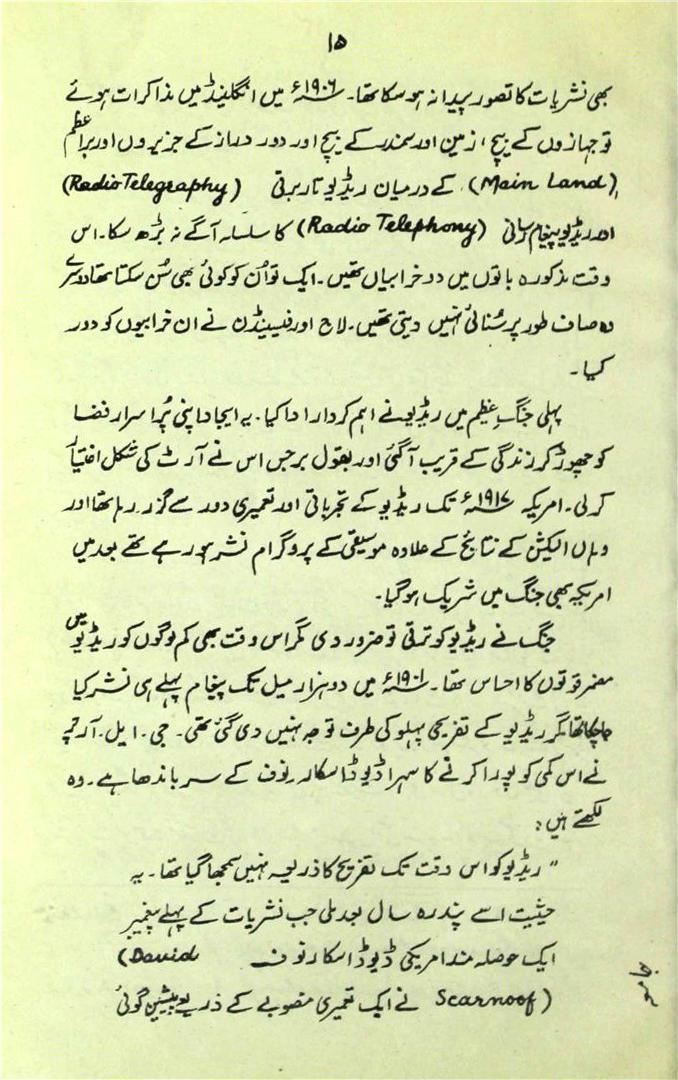 ۱۵
بھی نشریات کا تصور پیدا نہ ہو سکا تھا۔ ۱۹۰۶ء میں انگلینڈ میں مذاکرات ہوئے
تو جہازوں کے بیچ، زمین اور سمندر کے بیچ اور دور دراز کے جزیروں اور براعظم
(Main Land) کے درمیان ریڈیو تار برتی (Radio Telegraphy)
اور ریڈیو پیغام رسانی (Radio Telephony) کا سلسلہ آگے نہ بڑھ سکا۔ اس
وقت مذکورہ باتوں میں دو خرابیاں تھیں۔ ایک تو اُن کو کوئی بھی سُن سکتا تھا دوسرے
وہ صاف طور پر سُنائی نہیں دیتی تھیں۔ لاج اور فیسینڈن نے ان خرابیوں کو دور
کیا۔
پہلی جنگِ عظیم میں ریڈیو نے اہم کردار ادا کیا۔ یہ ایجاد اپنی پُراسرار فضا
کو چھوڑ کر زندگی کے قریب آگئی اور بقول برجس اس نے آرٹ کی شکل اختیار
کرلی۔ امریکہ ۱۹۱۷ء تک ریڈیو کے تجرباتی اور تعمیری دور سے گزر رہا تھا اور
وہاں الیکشن کے نتائج کے علاوہ موسیقی کے پروگرام نشر ہو رہے تھے بعد میں
امریکہ بھی جنگ میں شریک ہوگیا۔
جنگ نے ریڈیو کو ترقی تو ضرور دی مگر اس وقت بھی کم لوگوں کو ریڈیو میں
مضمر قوتوں کا احساس تھا۔ ۱۹۰۱ء میں دو ہزار میل تک پیغام پہلے ہی نشر کیا
جاچکا تھا مگر ریڈیو کے تفریحی پہلو کی طرف توجہ نہیں دی گئی تھی۔ جی۔ ایل۔ آرچر
نے اس کمی کو پورا کرنے کا سہرا ڈیوڈ اسکارنوف کے سر باندھا ہے۔ وہ
لکھتے ہیں:
" ریڈیو کو اس وقت تک تفریح کا ذریعہ نہیں سمجھا گیا تھا۔ یہ
حیثیت اسے پندرہ سال بعد ملی جب نشریات کے پہلے پیغمبر
ایک حوصلہ مند امریکی ڈیوڈ اسکارنوف (David
Scarnoof) نے ایک تعمیری منصوبے کے ذریعے پیشین گوئی